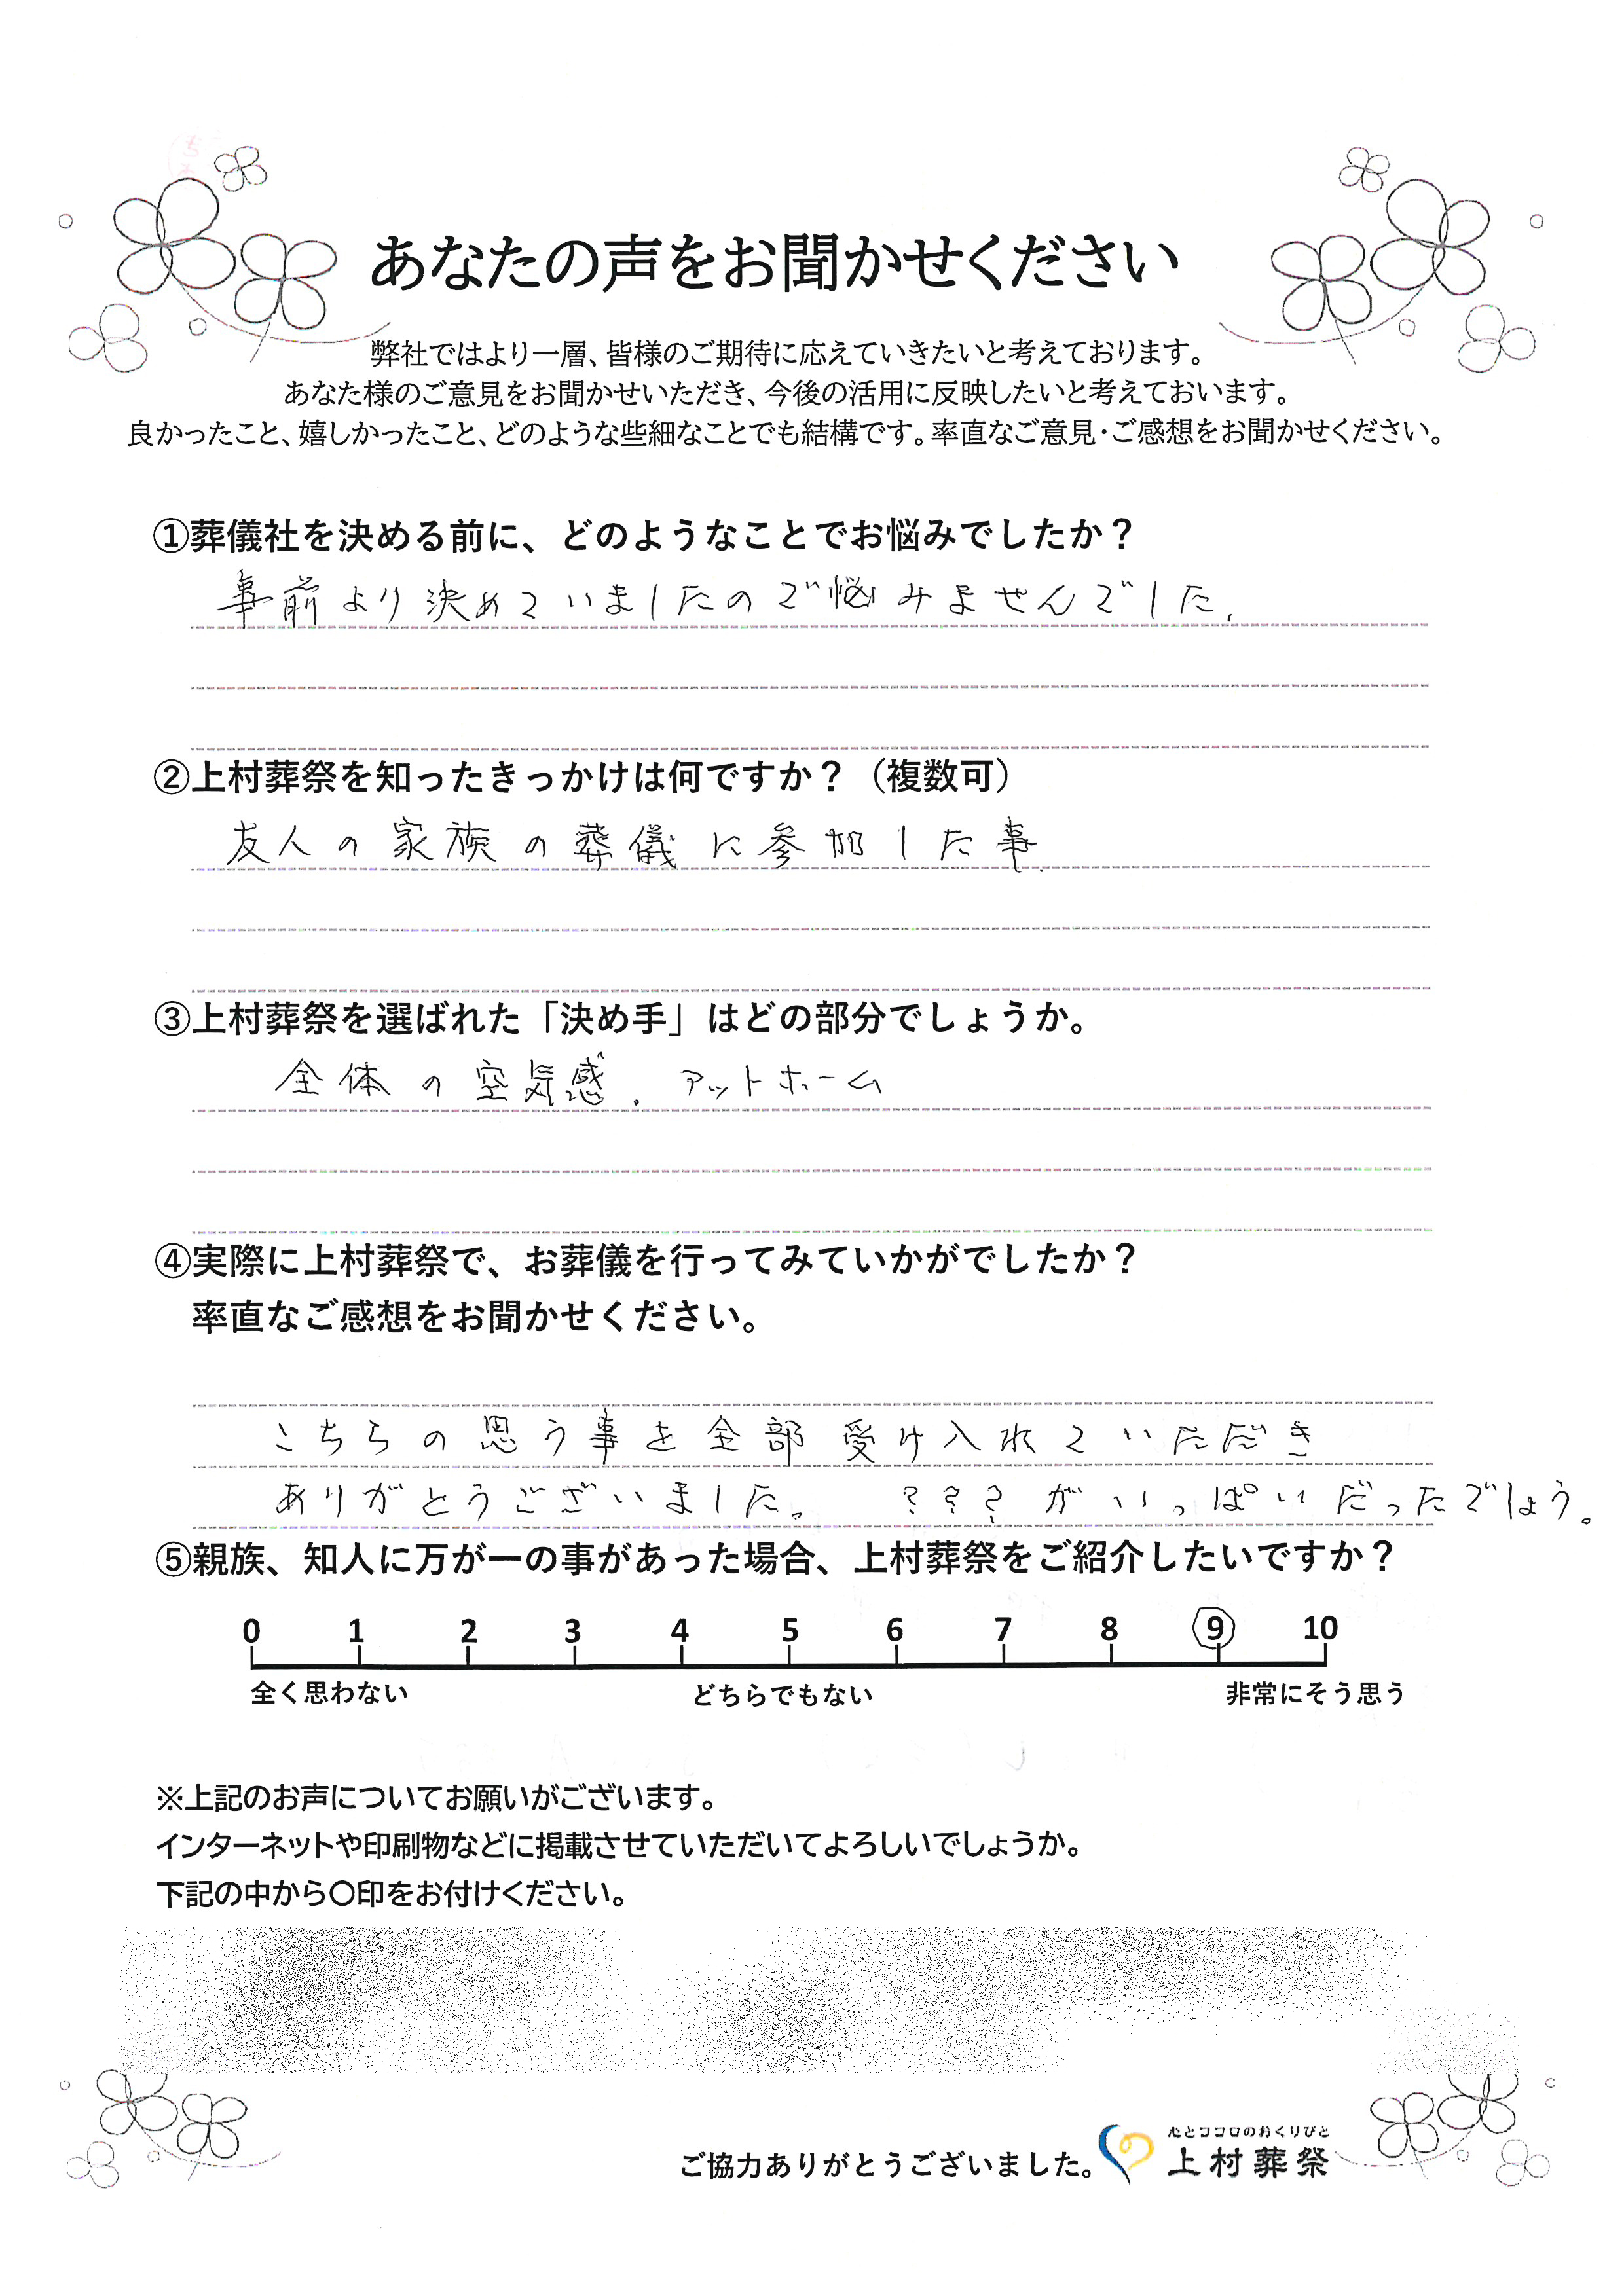 あなたの声をお聞かせください
弊社ではより一層、皆様のご期待に応えていきたいと考えております。
あなた様のご意見をお聞かせいただき、今後の活用に反映したいと考えておいます。
良かったこと、嬉しかったこと、どのような些細なことでも結構です。率直なご意見・ご感想をお聞かせください。
①葬儀社を決める前に、どのようなことでお悩みでしたか？
事前より決めていましたので悩みませんでした。
②上村葬祭を知ったきっかけは何ですか？（複数可）
友人の家族の葬儀に参加した事.
③上村葬祭を選ばれた「決め手」はどの部分でしょうか。
全体の空気感. アットホーム
④実際に上村葬祭で、お葬儀を行ってみていかがでしたか？
率直なご感想をお聞かせください。
こちらの思う事を全部受け入れていただき
ありがとうございました。 ???がいっぱいだったでしょう。
⑤親族、知人に万が一の事があった場合、上村葬祭をご紹介したいですか？
0 1 2 3 4 5 6 7 8 9 10
全く思わない どちらでもない 非常にそう思う
※上記のお声についてお願いがございます。
インターネットや印刷物などに掲載させていただいてよろしいでしょうか。
下記の中から〇印をお付けください。
心とココロのおくりびと
ご協力ありがとうございました。 上村葬祭